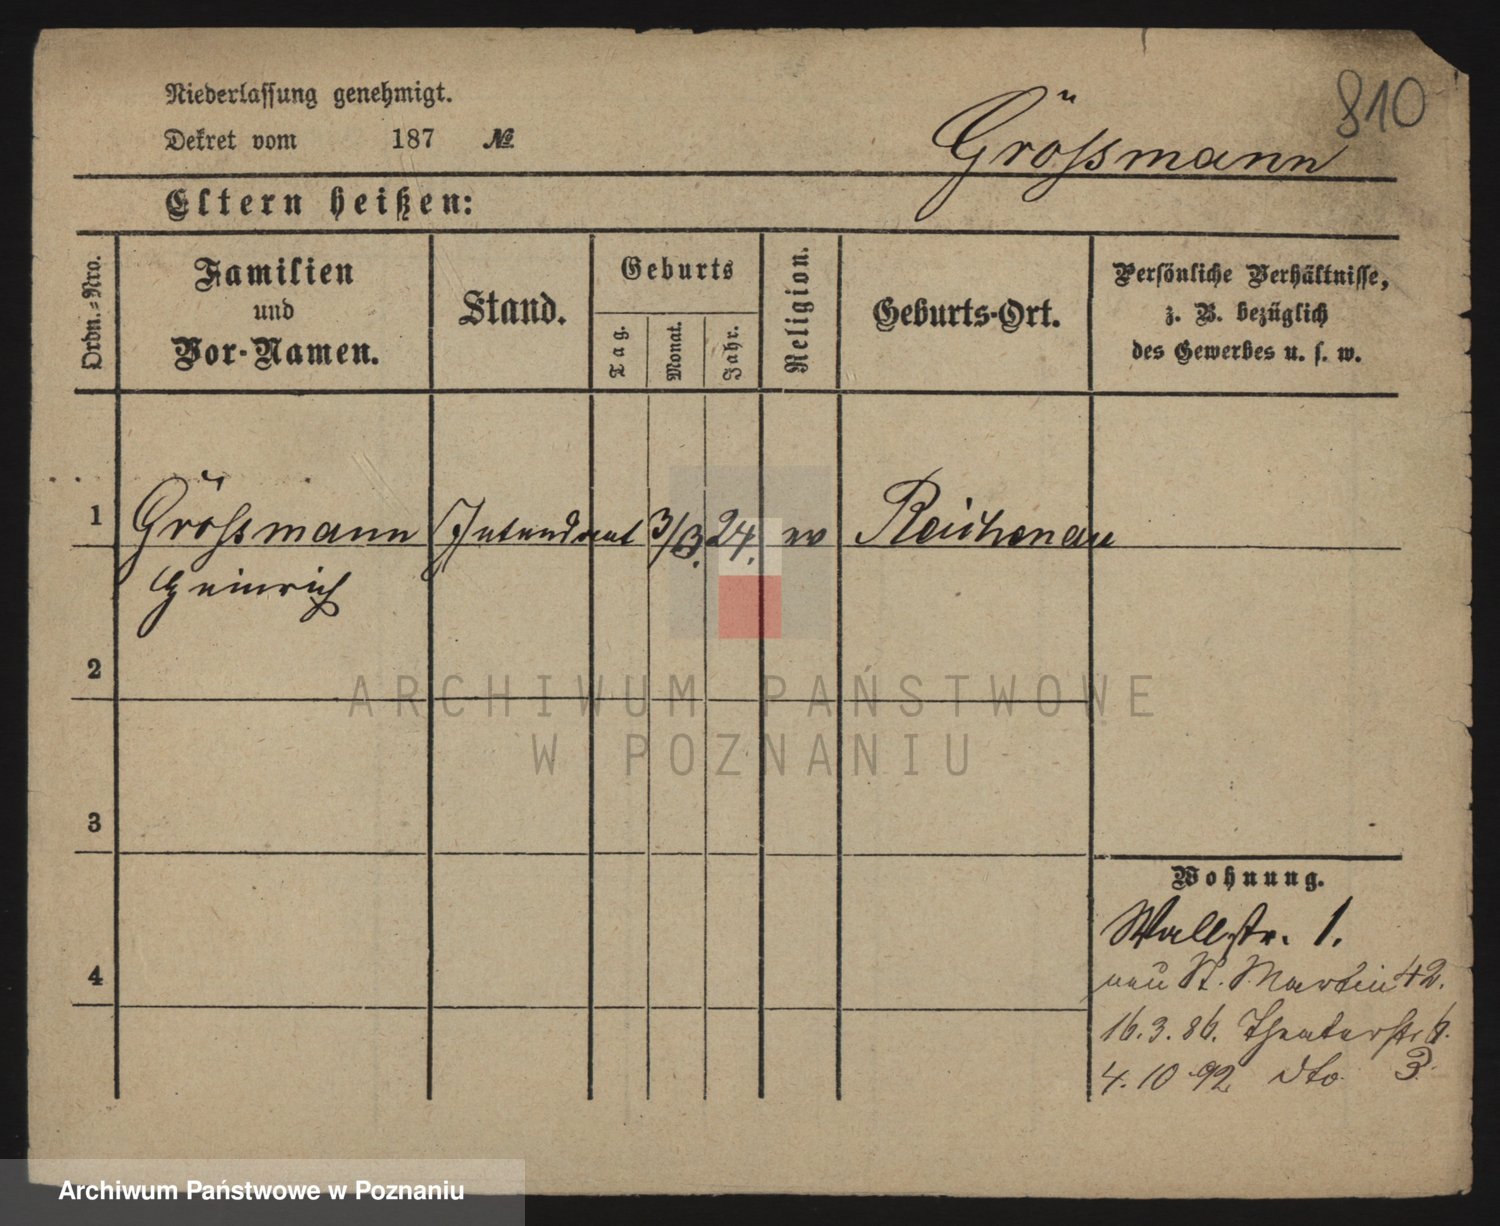 810
Niederlassung genehmigt.
Dekret vom 187 №
Grössmann
Eltern heißen:
Ordn.-Nro.
Familien
und
Vor-Namen.
Stand.
Geburts
Tag.
Monat.
Jahr.
Religion.
Geburts-Ort.
Persönliche Verhältnisse,
z. B. bezüglich
des Gewerbes u. s. w.
1 Grössmann Intendant 3/ 24. ev Reichenau
Heinrich
2
ARCHIWUM PAŃSTWOWE
W POZNANIU
3
Wohnung.
Wallstr. 1.
4
neu St. Martin 42.
16.3.86. Theaterstr 6.
4.10 92 dto 3.
Archiwum Państwowe w Poznaniu